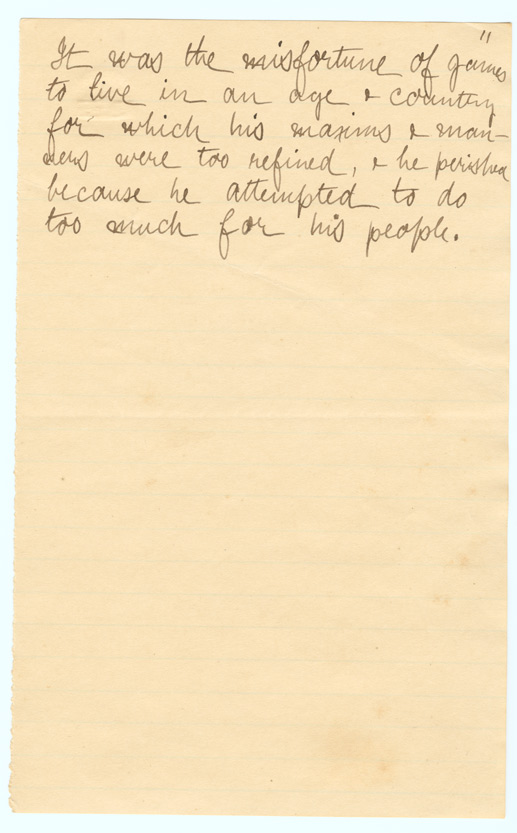 11
It was the misfortune of James
to live in an age & country
for which his maxims & man-
ners were too refined, & he perished
because he attempted to do
too much for his people.